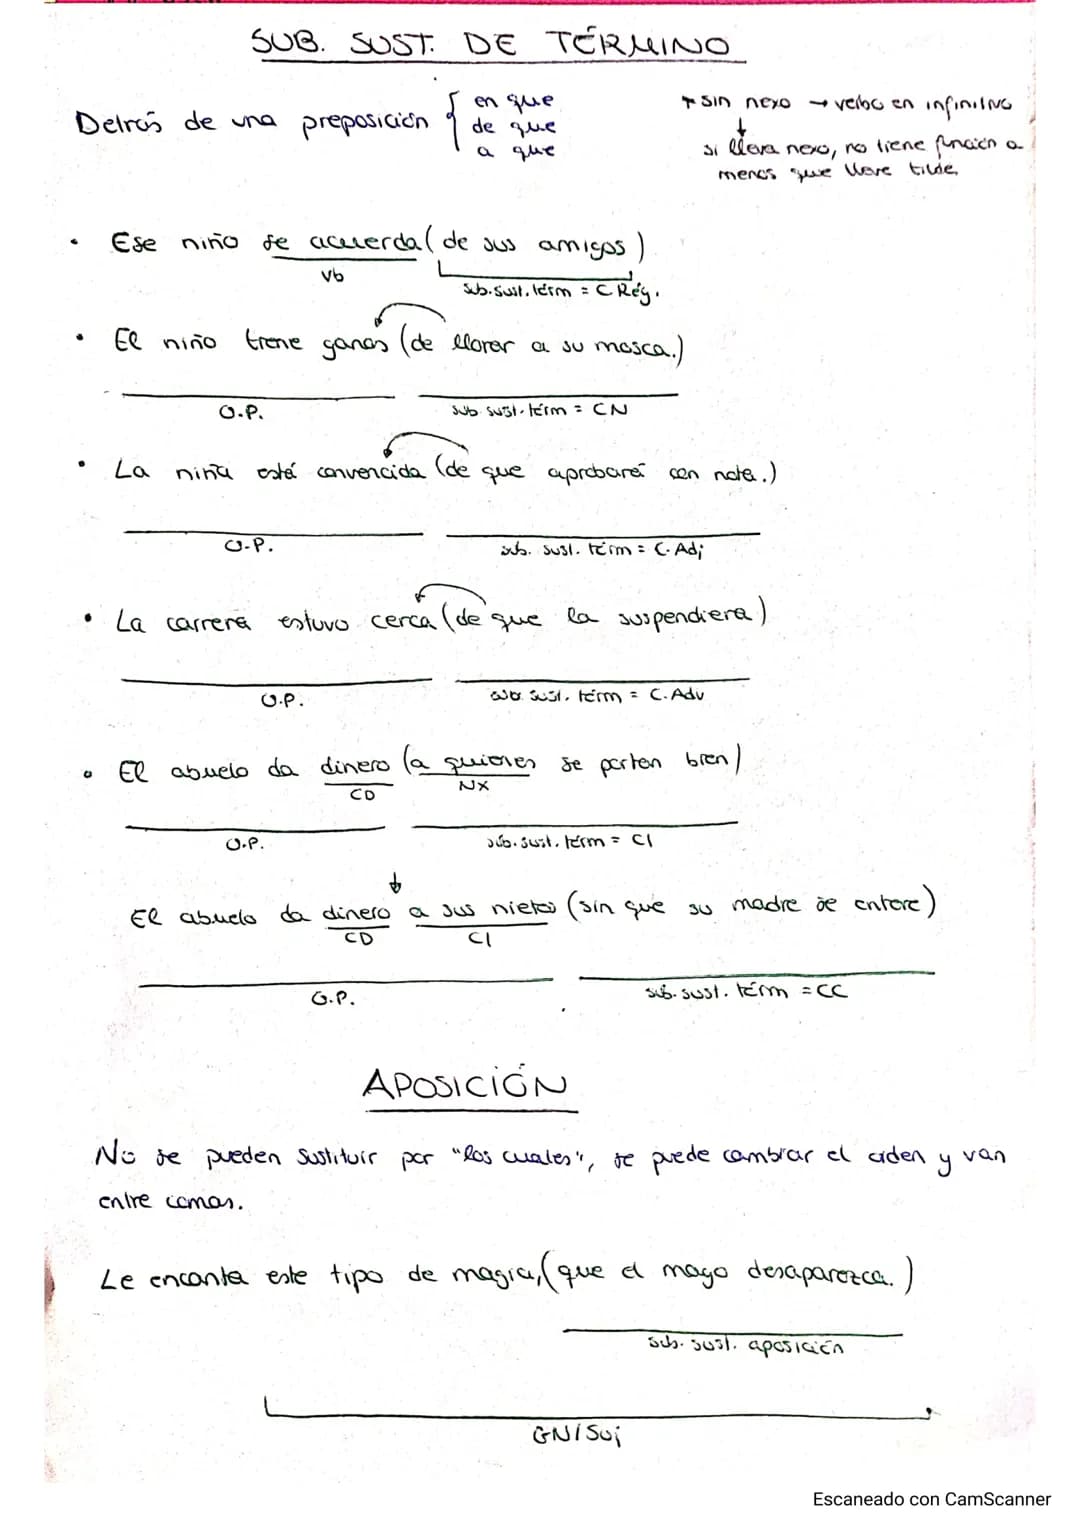 SUB. SUST. DE TÉRMINO
Detrás de una preposición { en que
de que
a que
* sin nexo → verbo en infinitivo
↓
si lleva nexo, no tiene función a
menos que lleve tilde.
• Ese niño se acuerda (de sus amigos)
Vb
Sub. sust. térm = C Rég.
• El niño tiene ganas (de llorar a su mosca.)
O.P.
sub sust. térm = CN
• La niña está convencida (de que aprobará con nota.)
O.P.
sub. sust. térm = C. Adj
• La carrera estuvo cerca (de que la suspendiera)
O.P.
sub. sust. térm = C. Adv
• El abuelo da dinero (a quienes se porten bien)
CD
NX
O.P.
sub. sust. térm = CI
↓
El abuelo da dinero a sus nietos (sin que su madre se entere)
CD
CI
O.P.
sub. sust. térm = CC
APOSICIÓN
No se pueden sustituir por "los cuales", se puede cambiar el orden y van
entre comas.
Le encanta este tipo de magia, (que el mago desaparezca.)
Sub. sust. aposición
GN/Suj
Escaneado con CamScanner